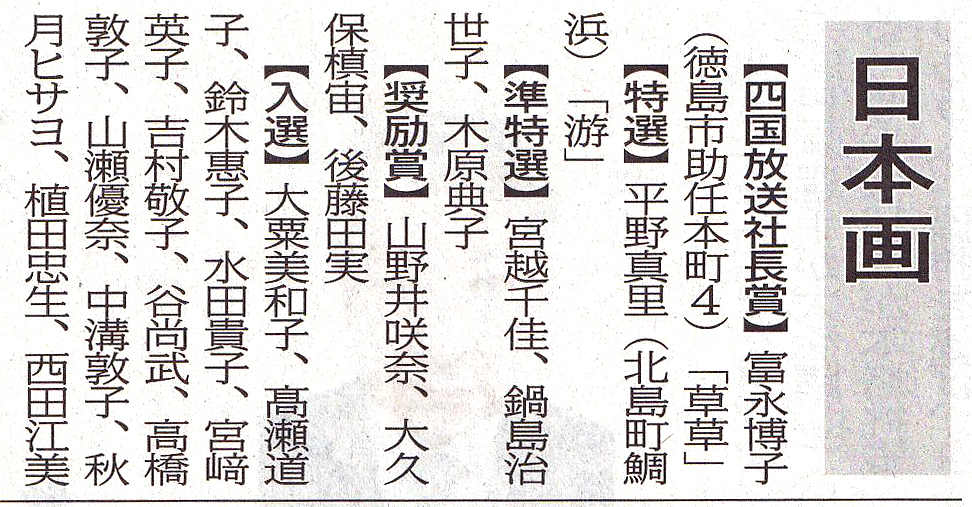 日本画
【四国放送社長賞】富永博子
（徳島市助任本町４）「草草」
【特選】平野真里（北島町鯛
浜）「游」
【準特選】宮越千佳、鍋島治
世子、木原典子
【奨励賞】山野井咲奈、大久
保槙宙、後藤田実
【入選】大粟美和子、髙瀬道
子、鈴木惠子、水田貴子、宮﨑
英子、吉村敬子、谷尚武、高橋
敦子、山瀬優奈、中溝敦子、秋
月ヒサヨ、植田忠生、西田江美